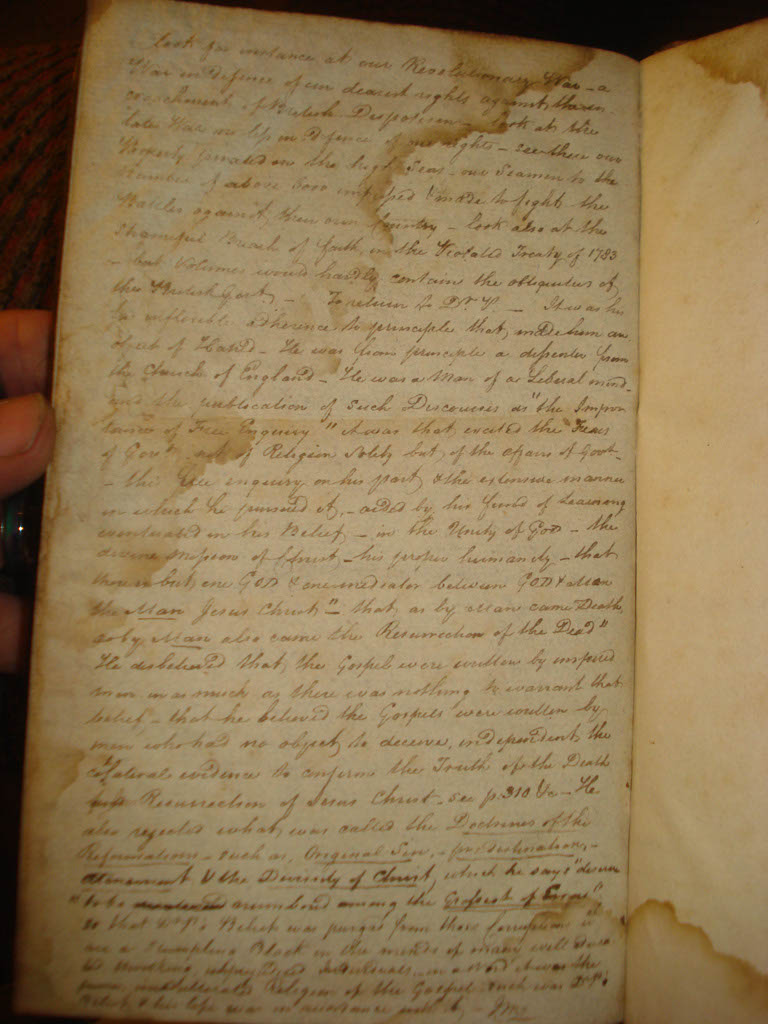 look for instance at our Revolutionary War – a
War in Defence of our dearest rights against the en-
croachment of British Despotism – look at the
late War on up in Defence of our rights – see there our
Property pirated on the high Seas – our Seamen to the
number of above 6000 impressed & made to fight the
Battles against their own Country – look also at the
Shameful Breach of faith in the Violated Treaty of 1783
– but Volumes would hardly contain the obliquities of
the British Govt. – To return to Dr. P. – It was his
inflexible adherence to principle that made him an
object of Hatred – He was from principle a dissenter from
the Church of England – He was a Man of a Liberal mind
and the publication of Such Discourses as "the Impor-
tance of Free Enquiry" it was that excited the Fears
of Govt. not of Religion Solely but of the affairs of Govt. –
– the free enquiry on his part & the extensive manner
in which he pursued it, – aided by his fund of Learning
eventuated in his Belief – in the Unity of God – the
divine mission of Christ – his proper humanity – that
there is but one GOD & one mediator between GOD & Man
the Man Jesus Christ" – that as by Man came Death,
so by Man also came the Resurrection of the Dead"
He disbelieved that the Gospels were written by inspired
men in as much as there was nothing to warrant that
belief – that he believed the Gospels were written by
men who had no object to deceive, independent the
colateral evidence to confirm the Truth of the Death
Resurrection of Jesus Christ – see p. 310 &c – He
also rejected what was called the Doctrines of the
Reformation – such as, Original Sin, – predestination, –
atonement & the Divinity of Christ, which he says "deserve
"to be numbered among the Grossest of Errors",
so that Dr. P's Belief was purged from those Corruptions
are a Stumpling Block in the minds of many well
thinking, Individuals – in a word it was the
unadulterated Religion of the Gospel such was Dr. P's
Belief & his life was in accordance with it –